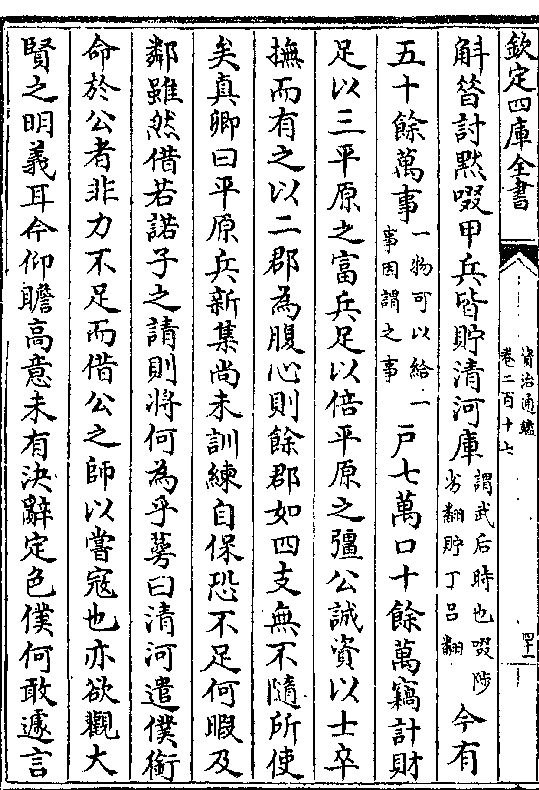 欽定四庫全書
資治通鑑
卷二百十七
斛昔討黙啜甲兵皆貯清河庫謂武后時也啜陟
劣翻貯丁吕翻今有
五十餘萬事一物可以給一
事因謂之事戸七萬口十餘萬竊計財
足以三平原之富兵足以倍平原之彊公誠資以士卒
撫而有之以二郡為腹心則餘郡如四支無不隨所使
矣真卿曰平原兵新集尚未訓練自保恐不足何暇及
鄰雖然借若諾子之請則將何為乎萼曰清河遣僕銜
命於公者非力不足而借公之師以嘗寇也亦欲觀大
賢之明義耳今仰瞻高意未有決辭定色僕何敢遽言